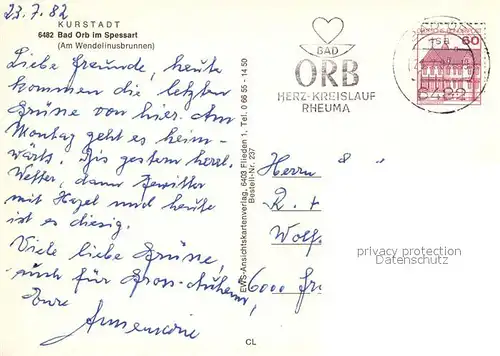 23.7.82
KURSTADT
6482 Bad Orb im Spessart
(Am Wendelinusbrunnen)
Liebe Freunde, heute
kommen die letzten
Grüße von hier. Am
Montag geht es heim-
wärts. Bis gestern herrl.
Wetter, dann Gewitter
mit Hagel und heute
ist es diesig.
Viele liebe Grüße,
auch für Gross-Auheim,
Eure
EWS-Ansichtskartenverlag, 6403 Flieden 1, Tel. 0 66 55 - 14 50
Bestell-Nr. 237
CL
BAD
ORB
HERZ-KREISLAUF
RHEUMA
60
6482
Herrn
R. +
Wolf.
6000 Fr
privacy protection
Datenschutz